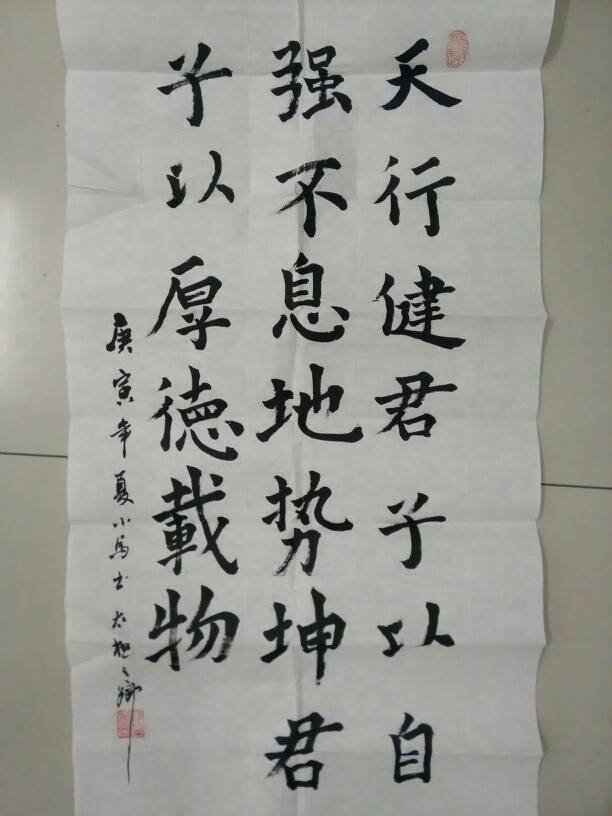 天行健君子以自
强不息地势坤君
子以厚德載物
庚寅年夏小馬书太极之鄉